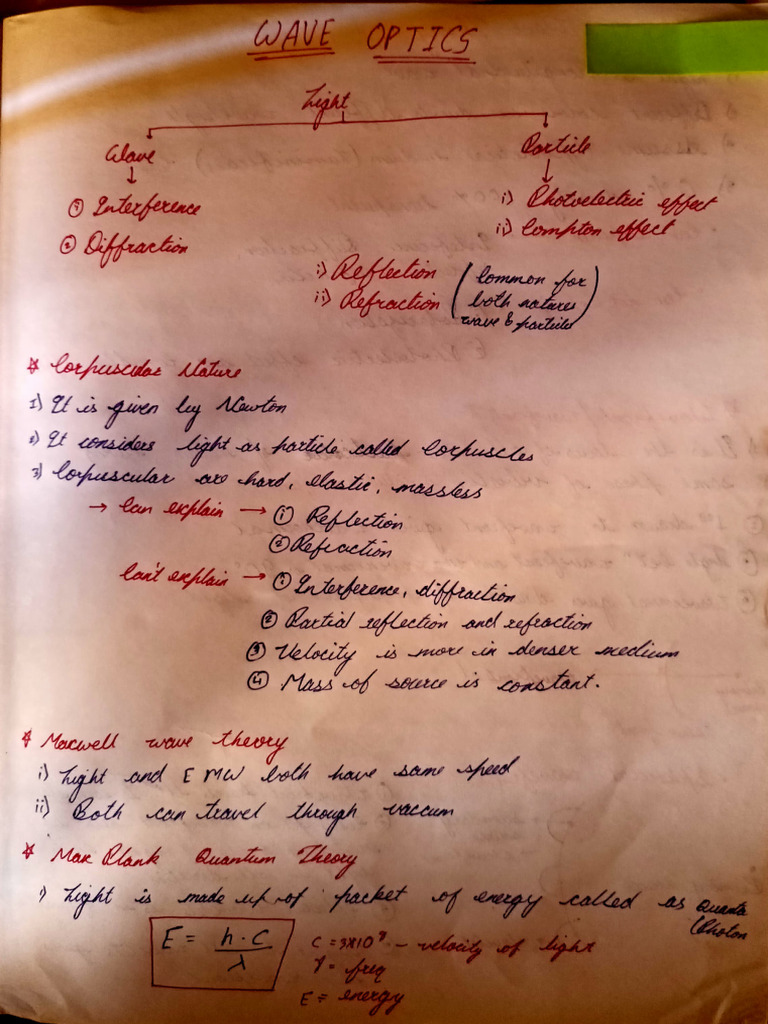 WAVE OPTICS
Light
Wave
Particle
① Interference
② Diffraction
i) Photoelectric effect
ii) Compton effect
i) Reflection
ii) Refraction
(Common for
both natures
wave & particle)
☆ Corpuscular Nature
1) It is given by Newton
2) It considers light as particle called Corpuscles
3) Corpuscular are hard, elastic, massless
→ Can explain → ① Reflection
② Refraction
Can't explain → ① Interference, diffraction
② Partial reflection and refraction
③ Velocity is more in denser medium
④ Mass of source is constant.
☆ Maxwell wave theory
i) Light and EMW both have same speed
ii) Both can travel through vaccum
☆ Max Plank Quantum Theory
1) Light is made up of packet of energy called as Quanta
(Photon
E = h·c/λ
C = 3×10⁸ – velocity of light
γ = freq
E = energy